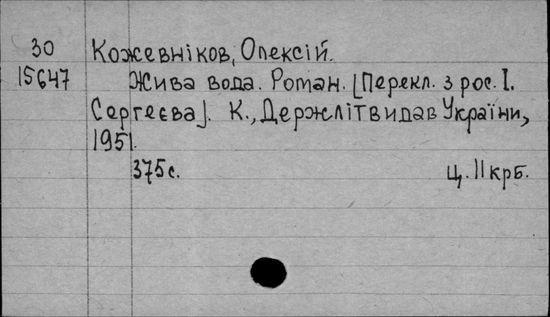 30 Кожевніков, Олексій.
15647 Жива вода. Роман. [Перекл. з рос. І.
Сергеєва]. К., Держлітвидав України,
1951.
375с. Ц. 11крб.